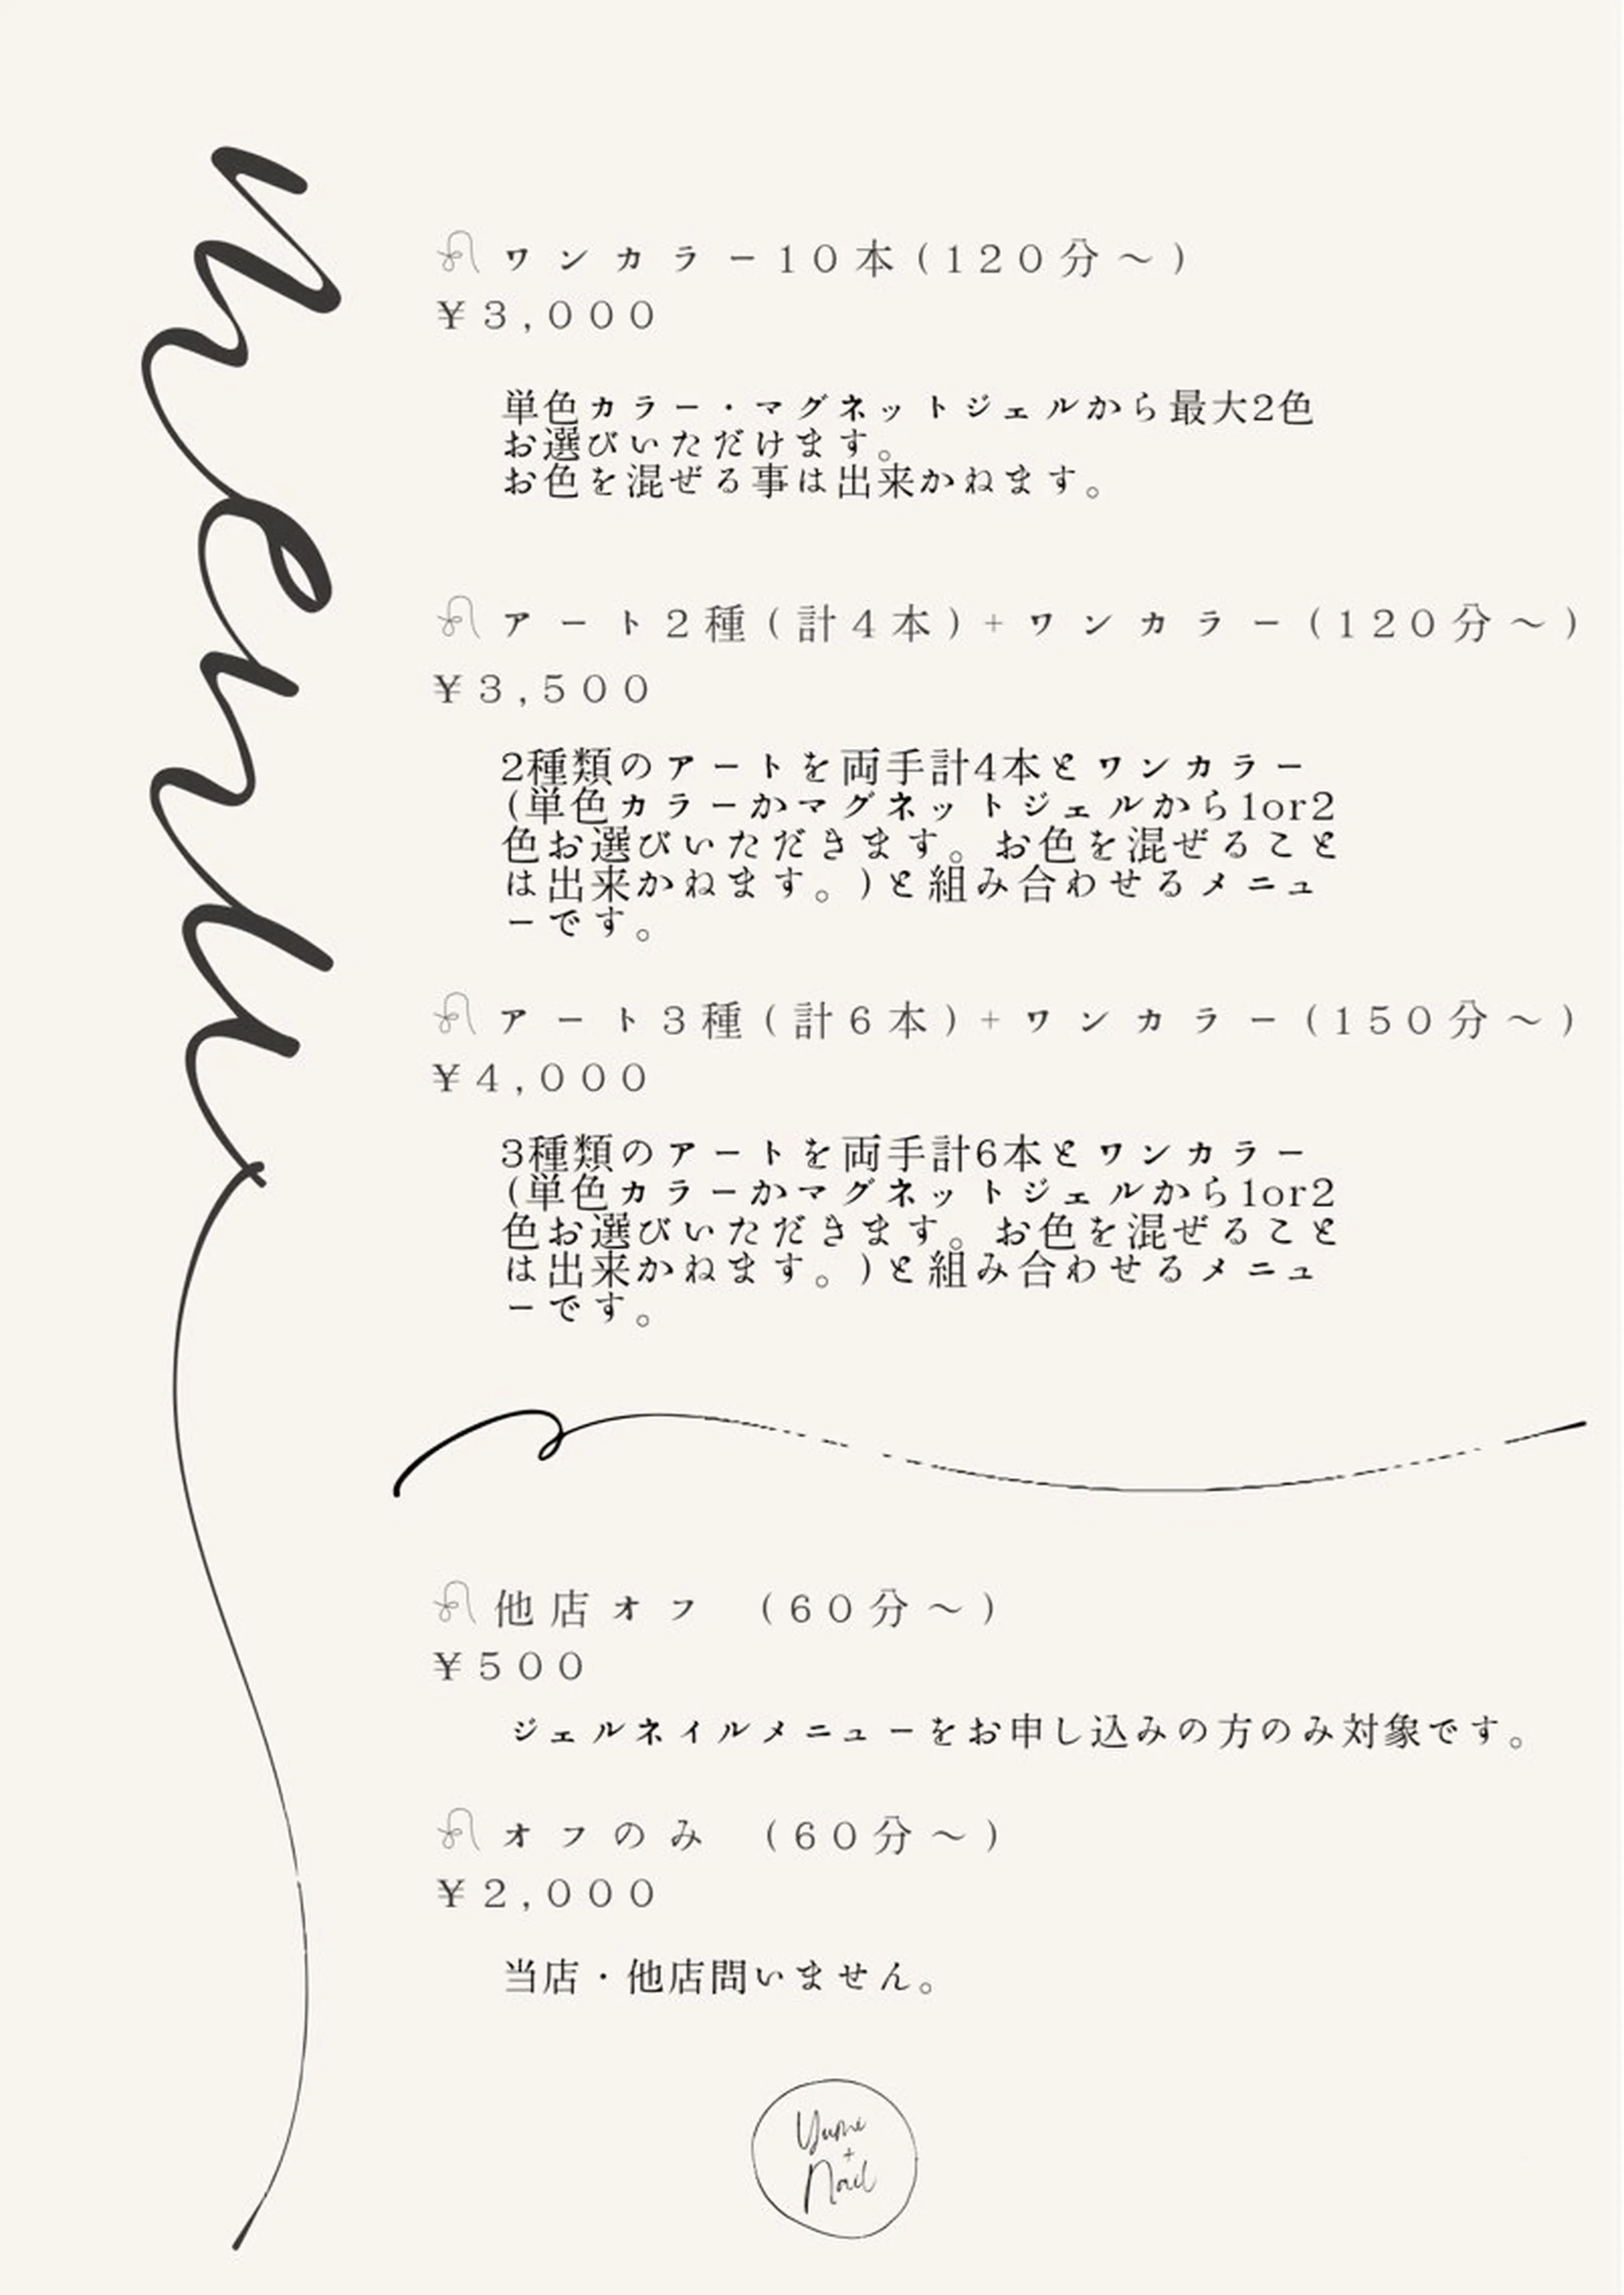 menu
ワンカラー10本(120分～)
¥3,000
単色カラー・マグネットジェルから最大2色
お選びいただけます。
お色を混ぜる事は出来かねます。
アート2種(計4本)+ワンカラー(120分～)
¥3,500
2種類のアートを両手計4本とワンカラー
(単色カラーかマグネットジェルから1or2
色お選びいただきます。お色を混ぜること
は出来かねます。)と組み合わせるメニュ
ーです。
アート3種(計6本)+ワンカラー(150分～)
¥4,000
3種類のアートを両手計6本とワンカラー
(単色カラーかマグネットジェルから1or2
色お選びいただきます。お色を混ぜること
は出来かねます。)と組み合わせるメニュ
ーです。
他店オフ (60分～)
¥500
ジェルネイルメニューをお申し込みの方のみ対象です。
オフのみ (60分～)
¥2,000
当店・他店問いません。
Yume
+
Nail